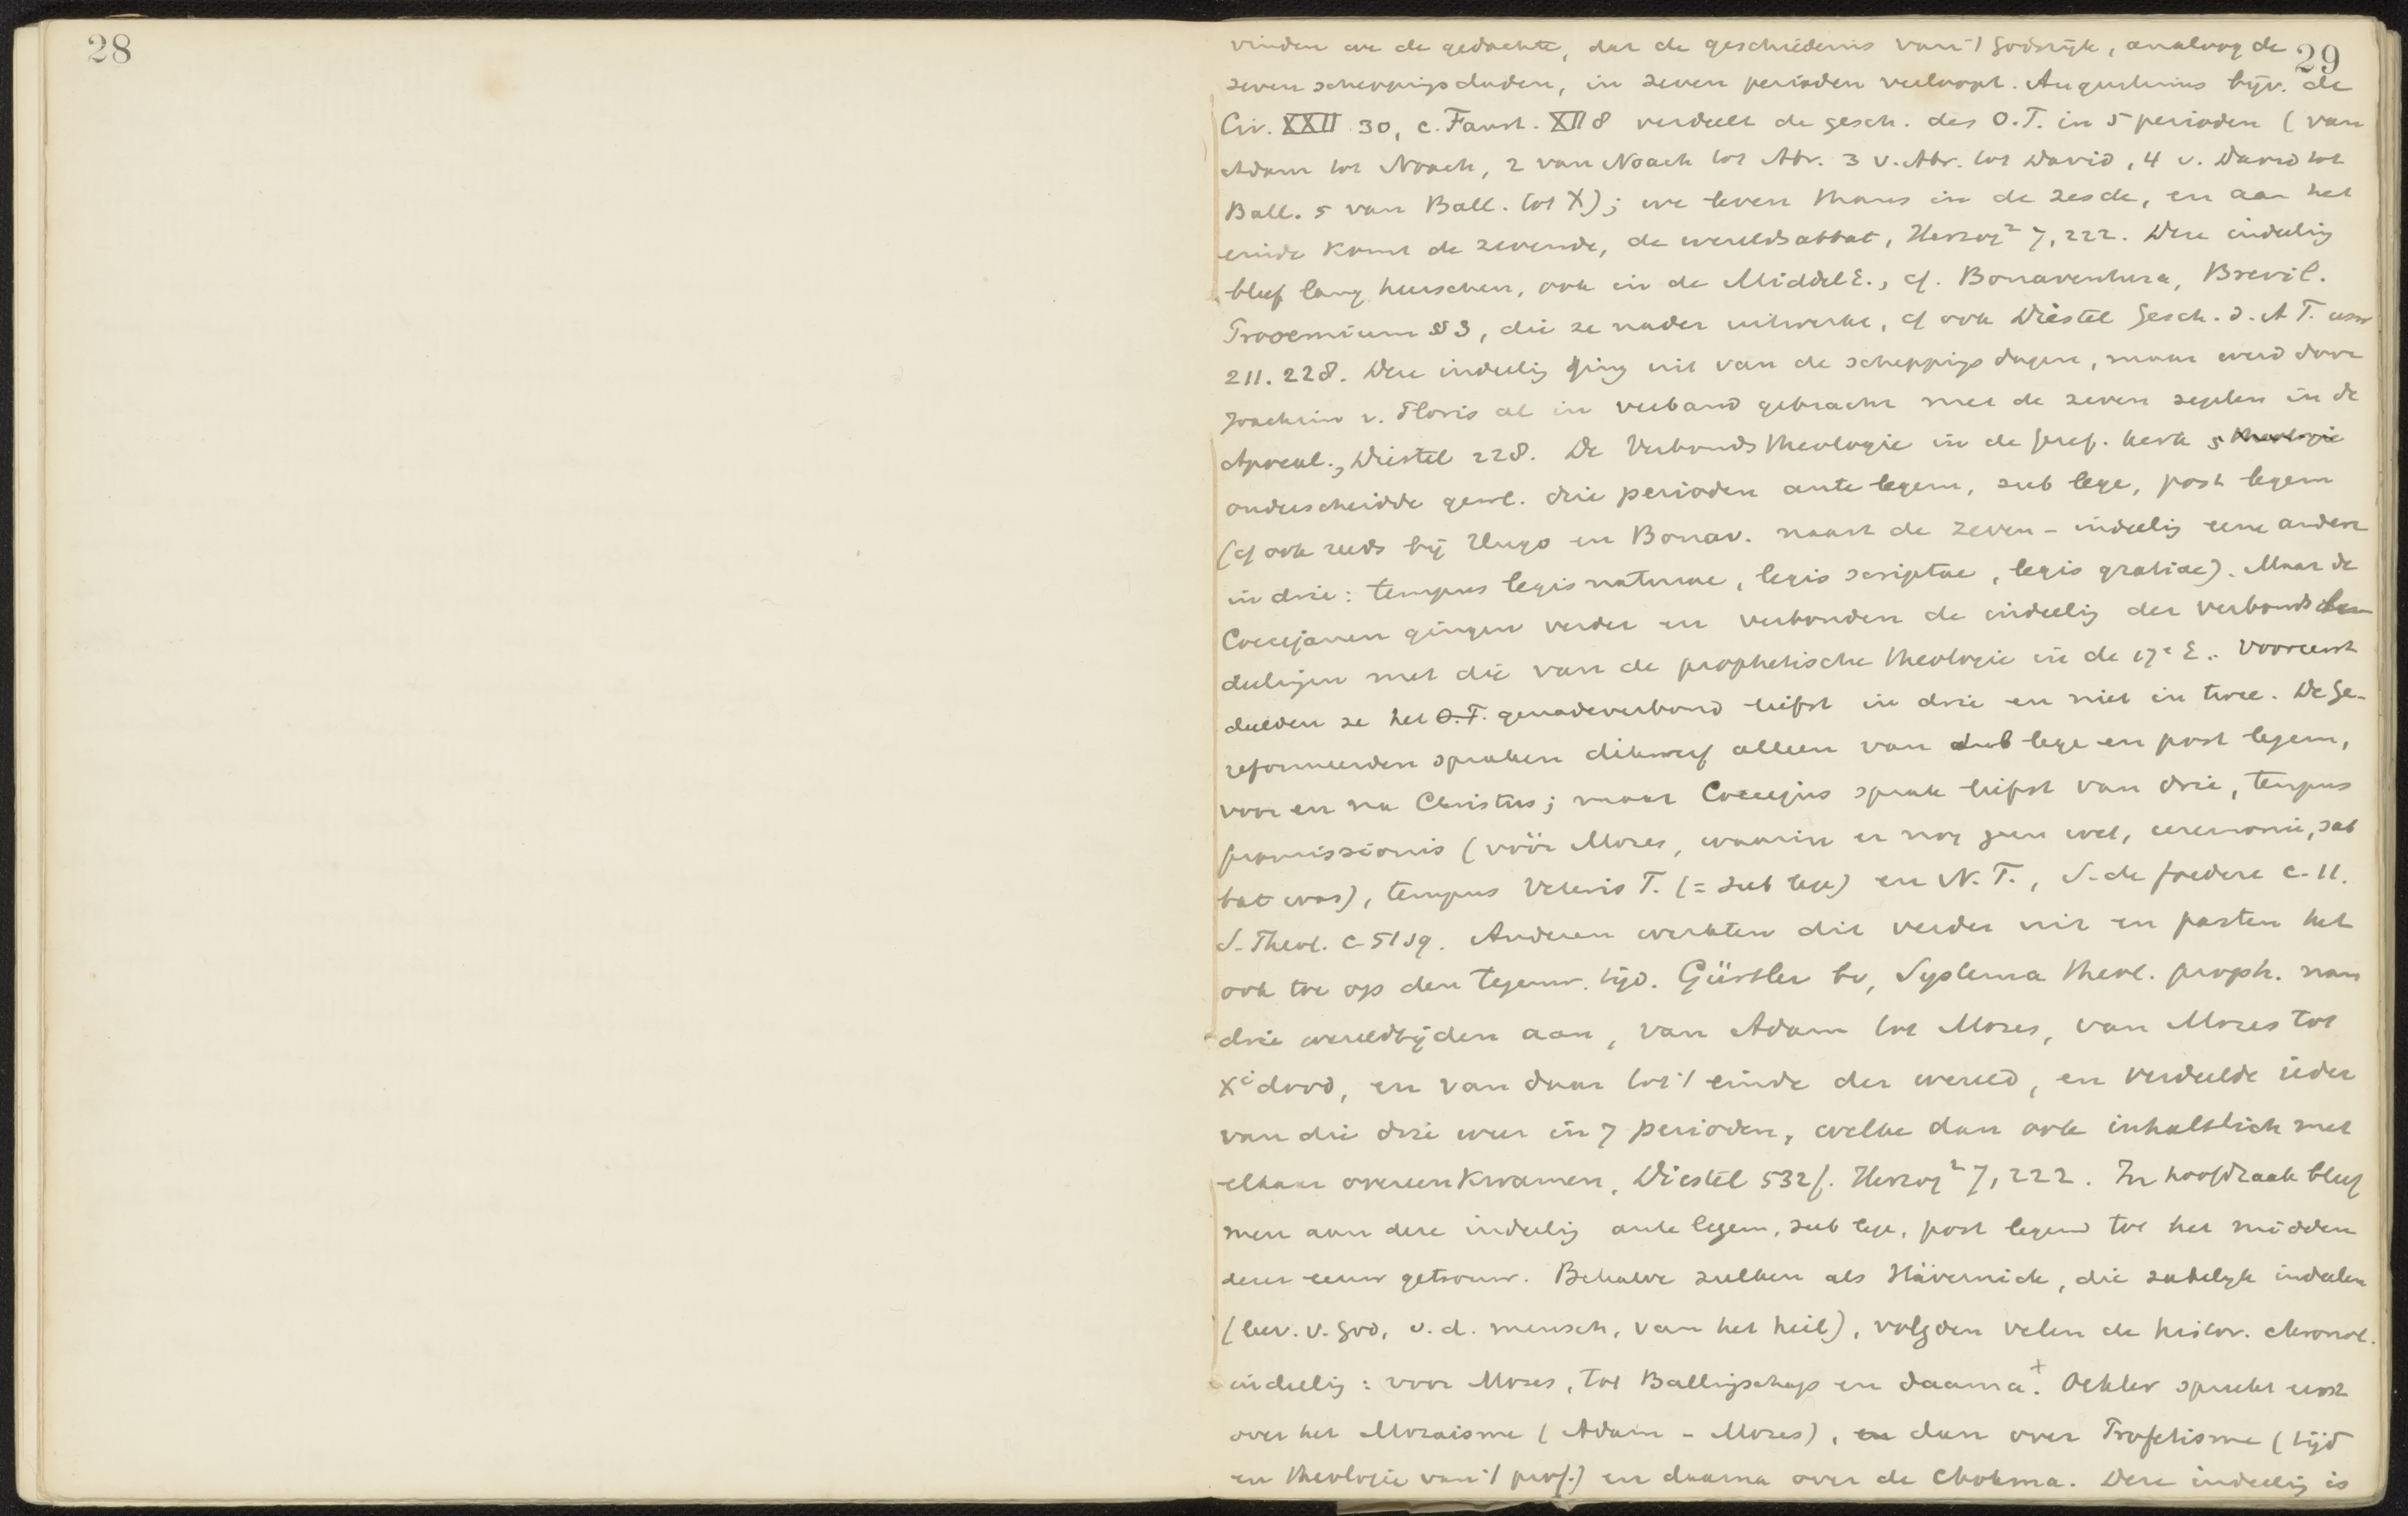 28
29
vinden we de gedachte, dat de geschiedenis van 't Godsrijk, analoog de
zeven scheppingsdaden, in zeven perioden verloopt. Augustinus bijv. de
Civ. XXII 30, c. Faust. XII 8 verdeelt de gesch. des O.T. in 5 perioden (van
Adam tot Noach, 2 van Noach tot Abr. 3 v. Abr. tot David, 4 v. David tot
Ball. 5 van Ball. tot X); we leven thans in de zesde, en aan het
einde komt de zevende, de wereldsabbat, Herzog² 7,222. Deze indeelig
bleef lang heerschen, ook in de MiddelE., cf. Bonaventura, Brevil.
Prooemium § 3, die ze nader uitwerkt, cf ook Diestel Gesch. d. A T. usw
211. 228. Deze indeelig ging uit van de scheppigsdagen, maar werd door
Joachim v. Floris al in verband gebracht met de zeven zegelen in de
Apocal., Diestel 228. De Verbondstheologie in de Geref. kerk theologie
onderscheidde gewl. drie perioden ante legem, sub lege, post legem
(cf ook reeds bij Hugo en Bonav. naast de zeven-indeelig eene andere
in drie: tempus legis naturae, legis scriptae, legis gratiae). Maar de
Coccejanen gingen verder en verbonden de indeelig der verbonds
deelingen met die van de prophetische theologie in de 17e E.. Vooreerst
deelden ze het O.T. genadeverbond liefst in drie en niet in twee. De Ge-
reformeerden spraken dikwerf alleen van sub lege en post legem,
voor en na Christus; maar Coccejus sprak liefst van drie, tempus
promissionis (vóór Mozes, waarin er nog geen wet, ceremonie, sab
bat was), tempus Veteris T. (= sub lege) en N. T., S. de foedere c. 11.
S. Theol. c 51 sq. Anderen werkten dit verder uit en pasten het
ook toe op den tegenw. tijd. Gürtler bv, Systema theol. proph. nam
drie wereldtijden aan, van Adam tot Mozes, van Mozes tot
X' dood, en van daar tot 't einde der wereld, en verdeelde ieder
van die drie weer in 7 perioden, welke dan ook inhaltlich met
elkaar overeenkwamen, Diestel 532f. Herzog² 7,222. In hoofdzaak bleef
men aan deze indeelig ante legem, sub lege, post legem tot het midden
dezer eeuw getrouw. Behalve zulken als Hävernick, die zakelijk indeelen
(leer. v. God, v. d. mensch, van het heil), volgden velen de histor. chronol.
indeelig: voor Mozes, tot Ballingschap en daarna+. Oehler spreekt eerst
over het Mozaisme (Adam - Mozes), en dan over Profetisme (tijd
en theologie van 't prof.) en daarna over de Chokma. Deze indeelig is